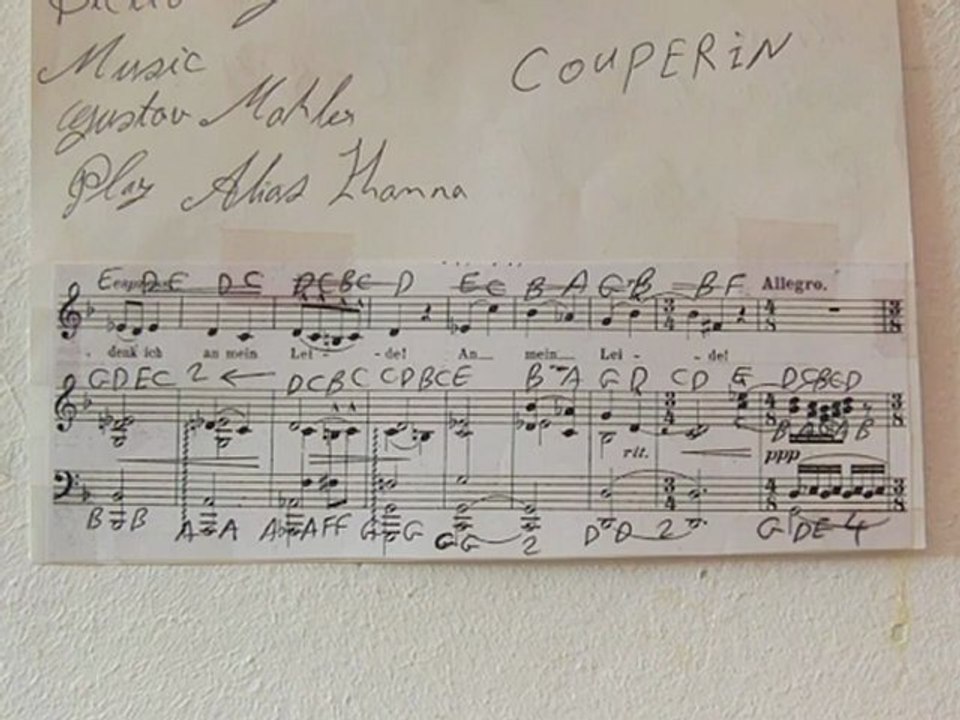 Music
COUPERiN
Gustav Mahler
Play Alias Zhanna
E D E D C D C B C D E C B A G B B F Allegro.
denk ich an mein Lei - - de! An mein Lei - - de!
G D E C 2 D C B C C D B C E B A G D C D E D C B C D
rit. ppp
B B A A A A F F G G G G 2 D D 2 G D E 4